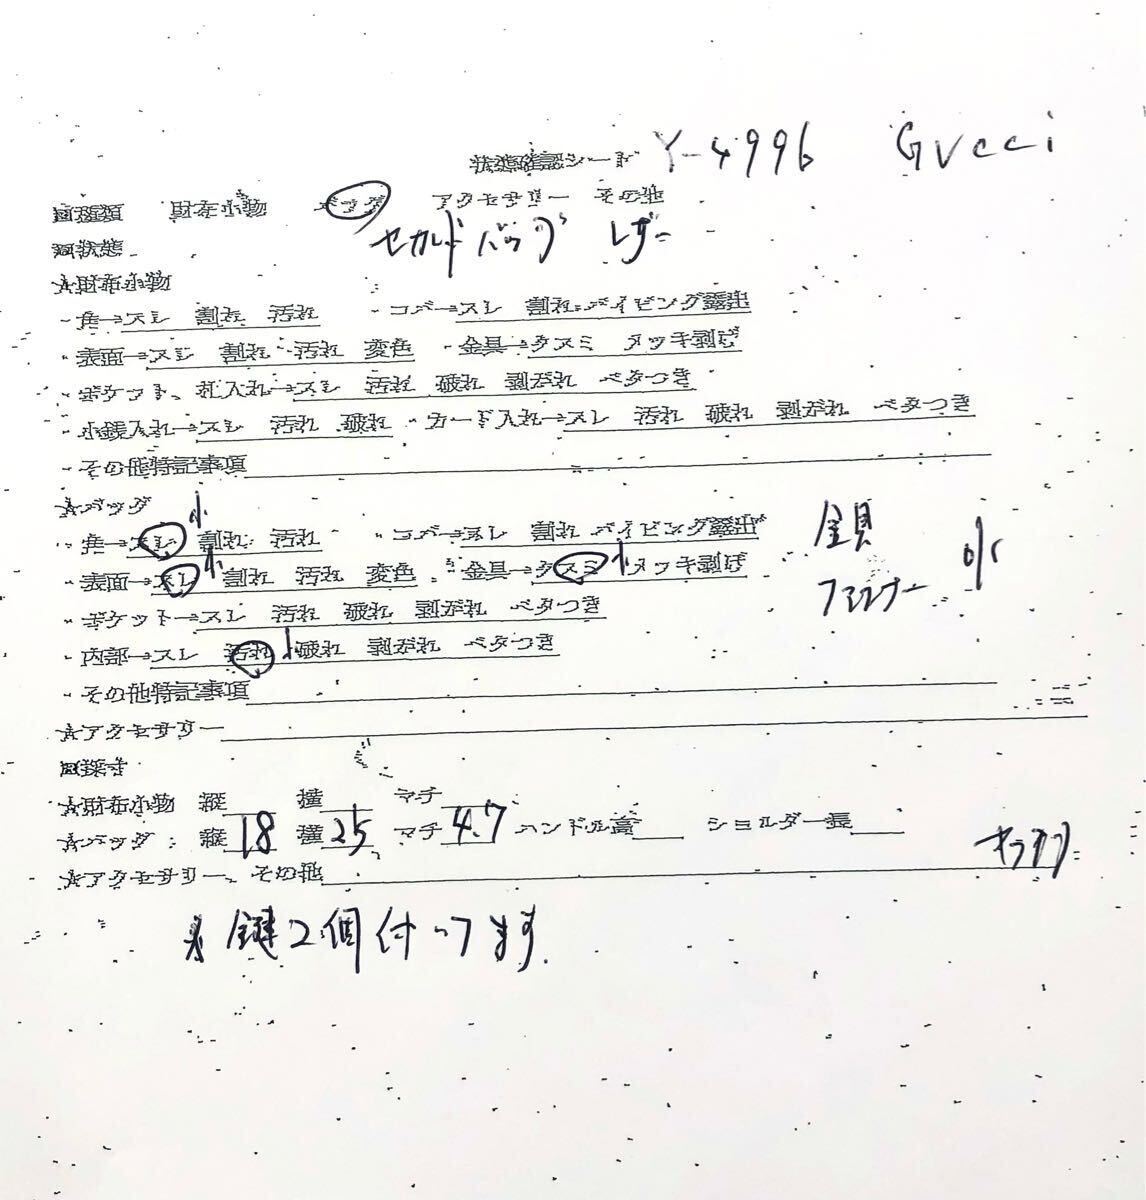 状態確認シート Y-4996 Gucci
回種類 財布小物 バッグ アクセサリー その他
セカンドバッグ レザー
回状態
★財布小物
・角→スレ 割れ 汚れ ・コバ→スレ 割れ パイピング露出
・表面→スレ 割れ 汚れ 変色 ・金具→クスミ メッキ剥げ
・ポケット、札入れ→スレ 汚れ 破れ 剥がれ ベタつき
・小銭入れ→スレ 汚れ 破れ ・カード入れ→スレ 汚れ 破れ 剥がれ ベタつき
・その他特記事項
★バッグ
・角→スレ 小 割れ 汚れ ・コバ→スレ 割れ パイピング露出
・表面→スレ 小 割れ 汚れ 変色 ・金具→クスミ 小 メッキ剥げ
金具
ファスナー 小
・ポケット→スレ 汚れ 破れ 剥がれ ベタつき
・内部→スレ 汚れ 破れ 剥がれ ベタつき
・その他特記事項
★アクセサリー
回採寸
★財布小物 縦 横 マチ
★バッグ: 縦 18 横 25 マチ 4.7 ハンドル高 ショルダー長
★アクセサリー、その他
※鍵2個付いてます